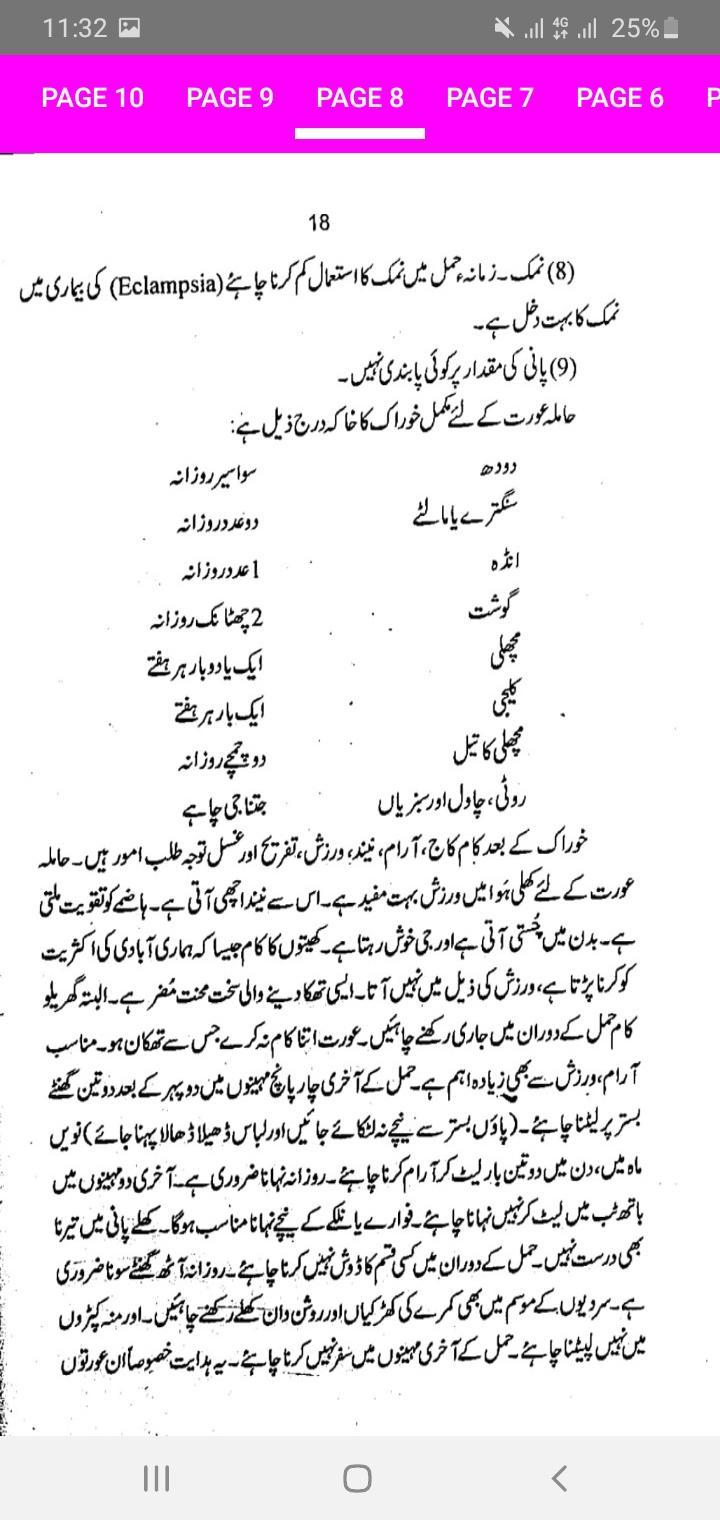 11:32 4G 25%
PAGE 10 PAGE 9 PAGE 8 PAGE 7 PAGE 6 P
18
(8) نمک۔ زمانہء حمل میں نمک کا استعمال کم کرنا چاہئے (Eclampsia) کی بیماری میں
نمک کا بہت دخل ہے۔
(9) پانی کی مقدار پر کوئی پابندی نہیں۔
حاملہ عورت کے لئے مکمل خوراک کا خاکہ درج ذیل ہے:
دودھ سوا سیر روزانہ
سنگترے یا مالٹے دو عدد روزانہ
انڈہ 1 عدد روزانہ
گوشت 2 چھٹانک روزانہ
مچھلی ایک یا دو بار ہر ہفتے
کلیجی ایک بار ہر ہفتے
مچھلی کا تیل دو چمچے روزانہ
روٹی، چاول اور سبزیاں جتنا جی چاہے
خوراک کے بعد کام کاج، آرام، نیند، ورزش، تفریح اور غسل توجہ طلب امور ہیں۔ حاملہ
عورت کے لئے کھلی ہَوا میں ورزش بہت مفید ہے۔ اس سے نیند اچھی آتی ہے۔ ہاضمے کو تقویت ملتی
ہے۔ بدن میں چُستی آتی ہے اور جی خوش رہتا ہے۔ کھیتوں کا کام جیسا کہ ہماری آبادی کی اکثریت
کو کرنا پڑتا ہے، ورزش کی ذیل میں نہیں آتا۔ ایسی تھکا دینے والی سخت محنت مُضر ہے۔ البتہ گھریلو
کام حمل کے دوران میں جاری رکھنے چاہئیں۔ عورت اتنا کام نہ کرے جس سے تھکان ہو۔ مناسب
آرام، ورزش سے بھی زیادہ اہم ہے۔ حمل کے آخری چار پانچ مہینوں میں دوپہر کے بعد دو تین گھنٹے
بستر پر لیٹنا چاہئے۔ (پاؤں بستر سے نیچے نہ لٹکائے جائیں اور لباس ڈھیلا ڈھالا پہنا جائے) نویں
ماہ میں، دن میں دو تین بار لیٹ کر آرام کرنا چاہئے۔ روزانہ نہانا ضروری ہے۔ آخری دو مہینوں میں
باتھ ٹب میں لیٹ کر نہیں نہانا چاہئے۔ فوارے یا نلکے کے نیچے نہانا مناسب ہوگا۔ کھلے پانی میں تیرنا
بھی درست نہیں۔ حمل کے دوران میں کسی قسم کا ڈوش نہیں کرنا چاہئے۔ روزانہ آٹھ گھنٹے سونا ضروری
ہے۔ سردیوں کے موسم میں بھی کمرے کی کھڑکیاں اور روشن دان کھلے رکھنے چاہئیں۔ اور منہ کپڑوں
میں نہیں لپیٹنا چاہئے۔ حمل کے آخری مہینوں میں سفر نہیں کرنا چاہئے۔ یہ ہدایت خصوصاً ان عورتوں